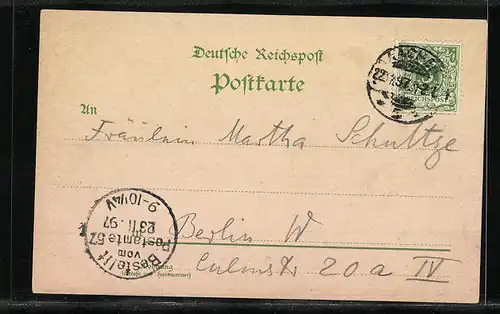 Deutsche Reichspost
Postkarte
An
Fräulein Martha Schultze
Berlin W
Culmstr 20a IV
Bestellt
vom
Postamte 57
23 11. 97
9-10¼V